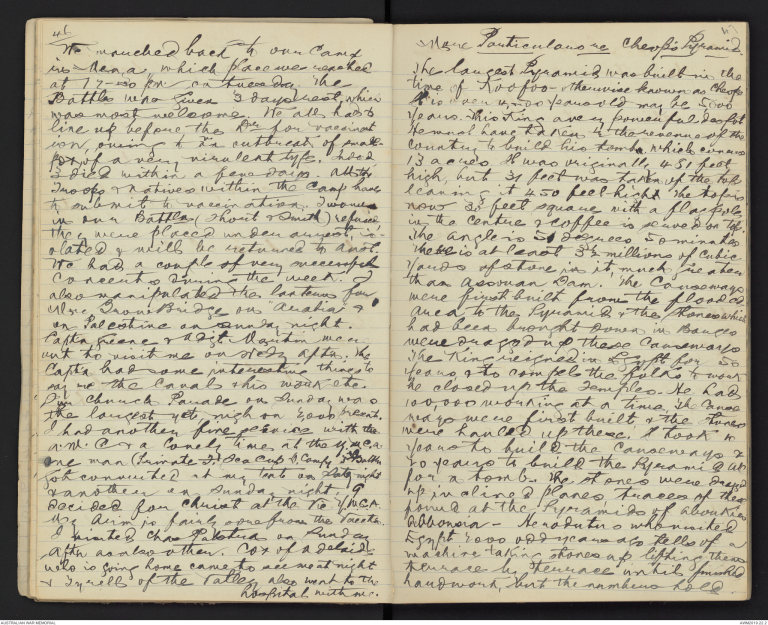 46
We marched back to our Camp
in Mena, which place we reached
at 12-30 pm on Tuesday. The
Battln was given 3 days rest, which
was most welcome. We all had to
line up before the Drs for vaccinat
ion, owing to an outbreak of small-
pox of a very virulent type.
3 died within a few days. All the
Troops & natives within the Camp have
to submit to vaccination. Two men
in our Battln (Short & Smith) refused
they were placed under arrest, is-
olated & will be returned to Aust.
We had a couple of very successful
Concerts during the week. I
also manipulated the lantern for
Mrs Bridge on Arabia &
on Palestine on Sunday night.
Captn Greene & Adjt. went
out to visit me on Wedy Aftn. The
Captn had some interesting things to
say re the Canal & his work etc.
Our Church Parade on Sunday was
the largest yet nigh on 2000 present.
I had another fine service with the
& a lovely time at the Y.M.C.A.
one man (Private Coy Battln
was converted at my tent on Saty night
& another on Sunday night. 19
decided for Christ at the Y.M.C.A.
My Arm is fairly sore from the Vaccn.
I visited Chas on Sunday
Aftn & also other. Cox of Adelaide
who is going home came to see me at night
& Tyrell of the Valley also went to the
hospital with me.
47
More Particulars re Cheop's Pyramid.
The largest Pyramid was built in the
time of Koofoo - otherwise known as Cheops
It is over 4,000 years old may be 5000
years. This King a very powerful despot
He must have taken the revenue of the
country to build his tomb, which covers
13 acres. It was originally 481 feet
high but 31 feet was taken off the top
leaving it 450 feet high. The top is
now 32 feet square with a flagpole
in the centre & coffee is served on top.
The angle is 51 degrees 50 minutes
There is at least 3½ millions of cubic
yards of stone in it, much greater
than Assouan Dam. The Causeways
were first built from the flooded
area to the Pyramid & the stones which
had been brought down in Barges
were dragged up these Causeways
The King reigned in Egypt for 50
years, & to compel the folks to work
he closed up the Temples. He had
100,000 working at a time. The Cause
ways were first built & the stones
were hauled up these. It took 10
years to build the Causeways &
20 years to build the Pyramid All
for a tomb. The stones were dragged
up inclined planes, traces of these
found at the Pyramids of Aboukir
Herodotus who visited
Egypt 2000 odd years ago tells of a
machine taking stones up lifting them
terrace by terrace until finished
handwork, but the numbers hold
AUSTRALIAN WAR MEMORIAL
AWM2019.22.2